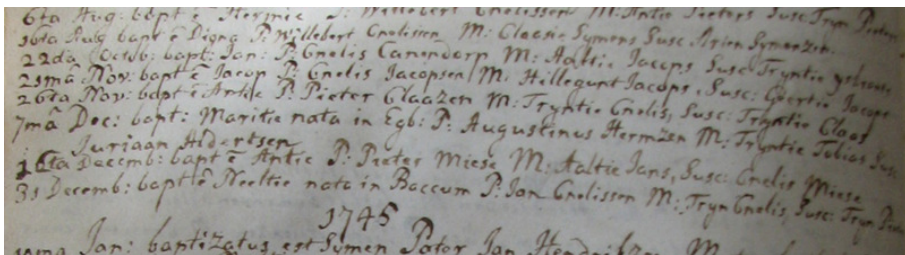 6ta Aug: bapt ē Hermie P: Willebert Cnelissen M: Antie Pieters Susc: Tryn
16ta Aug bapt ē Digna P: Willebert Cnelissen M: Claasie Symens Susc: Arien Symonzen
22da Octob: bapt: Jan: P: Cnelis Canendorp M: Aaltie Jacops Susc: Tryntie
21mâ Nov: bapt ē Jacop P: Cnelis Jacopsen M: Hillegunt Jacops, Susc: Geertie Jacops
26ta Nov: bapt ē Antie P: Pieter Claazen M: Tryntie Cnelis, Susc: Tryntie Claas
7mâ Dec: bapt: Maritie nata in Egb: P: Augustinus Hermzen M: Tryntie Tobias Susc:
Juriaan Aldertsen
16ta Decemb: bapt ē Antie P: Pieter Miese M: Aaltie Jans, Susc: Cnelis Miese
31 Decemb: bapt ē Neeltie nata in Baccum P: Jan Cnelissen M: Tryn Cnelis, Susc: Tryn
1745
Jan: baptizatus est Symen Pater Jan